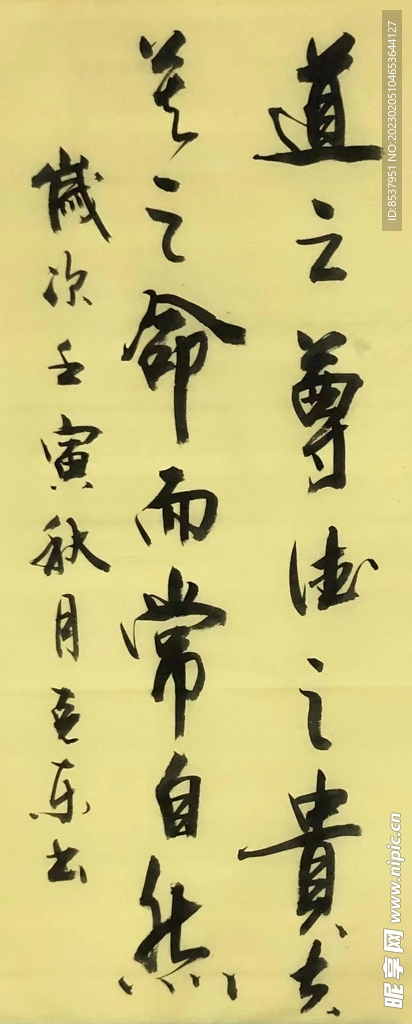 道之尊德之貴夫
莫之命而常自然
歲次壬寅秋月克东书
ID:8537951 NO:20230205104653644127
昵享网 www.nipic.cn